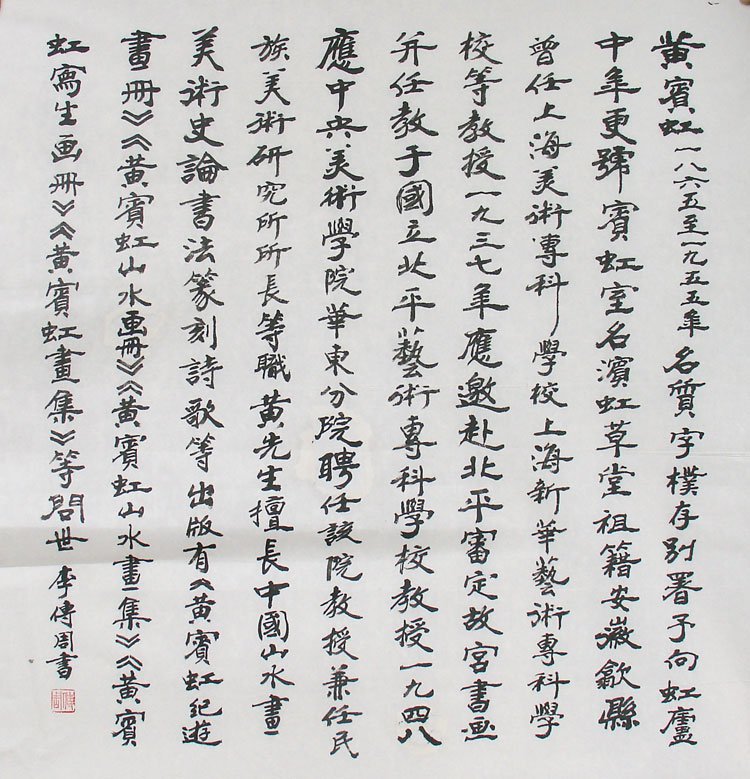 黃賓虹一八六五至一九五五年名質字樸存别署予向虹廬
中年更號賓虹室名濱虹草堂祖籍安徽歙縣
曾任上海美術專科學校上海新華藝術專科學
校等教授一九三七年應邀赴北平審定故宮書画
并任教于國立北平藝術專科學校教授一九四八
應中央美術學院華東分院聘任該院教授兼任民
族美術研究所所長等職黃先生擅長中國山水畫
美術史論書法篆刻詩歌等出版有《黃賓虹紀遊
畫冊》《黃賓虹山水画冊》《黃賓虹山水畫集》《黃賓
虹寫生画冊》《黃賓虹畫集》等問世 李傳周書